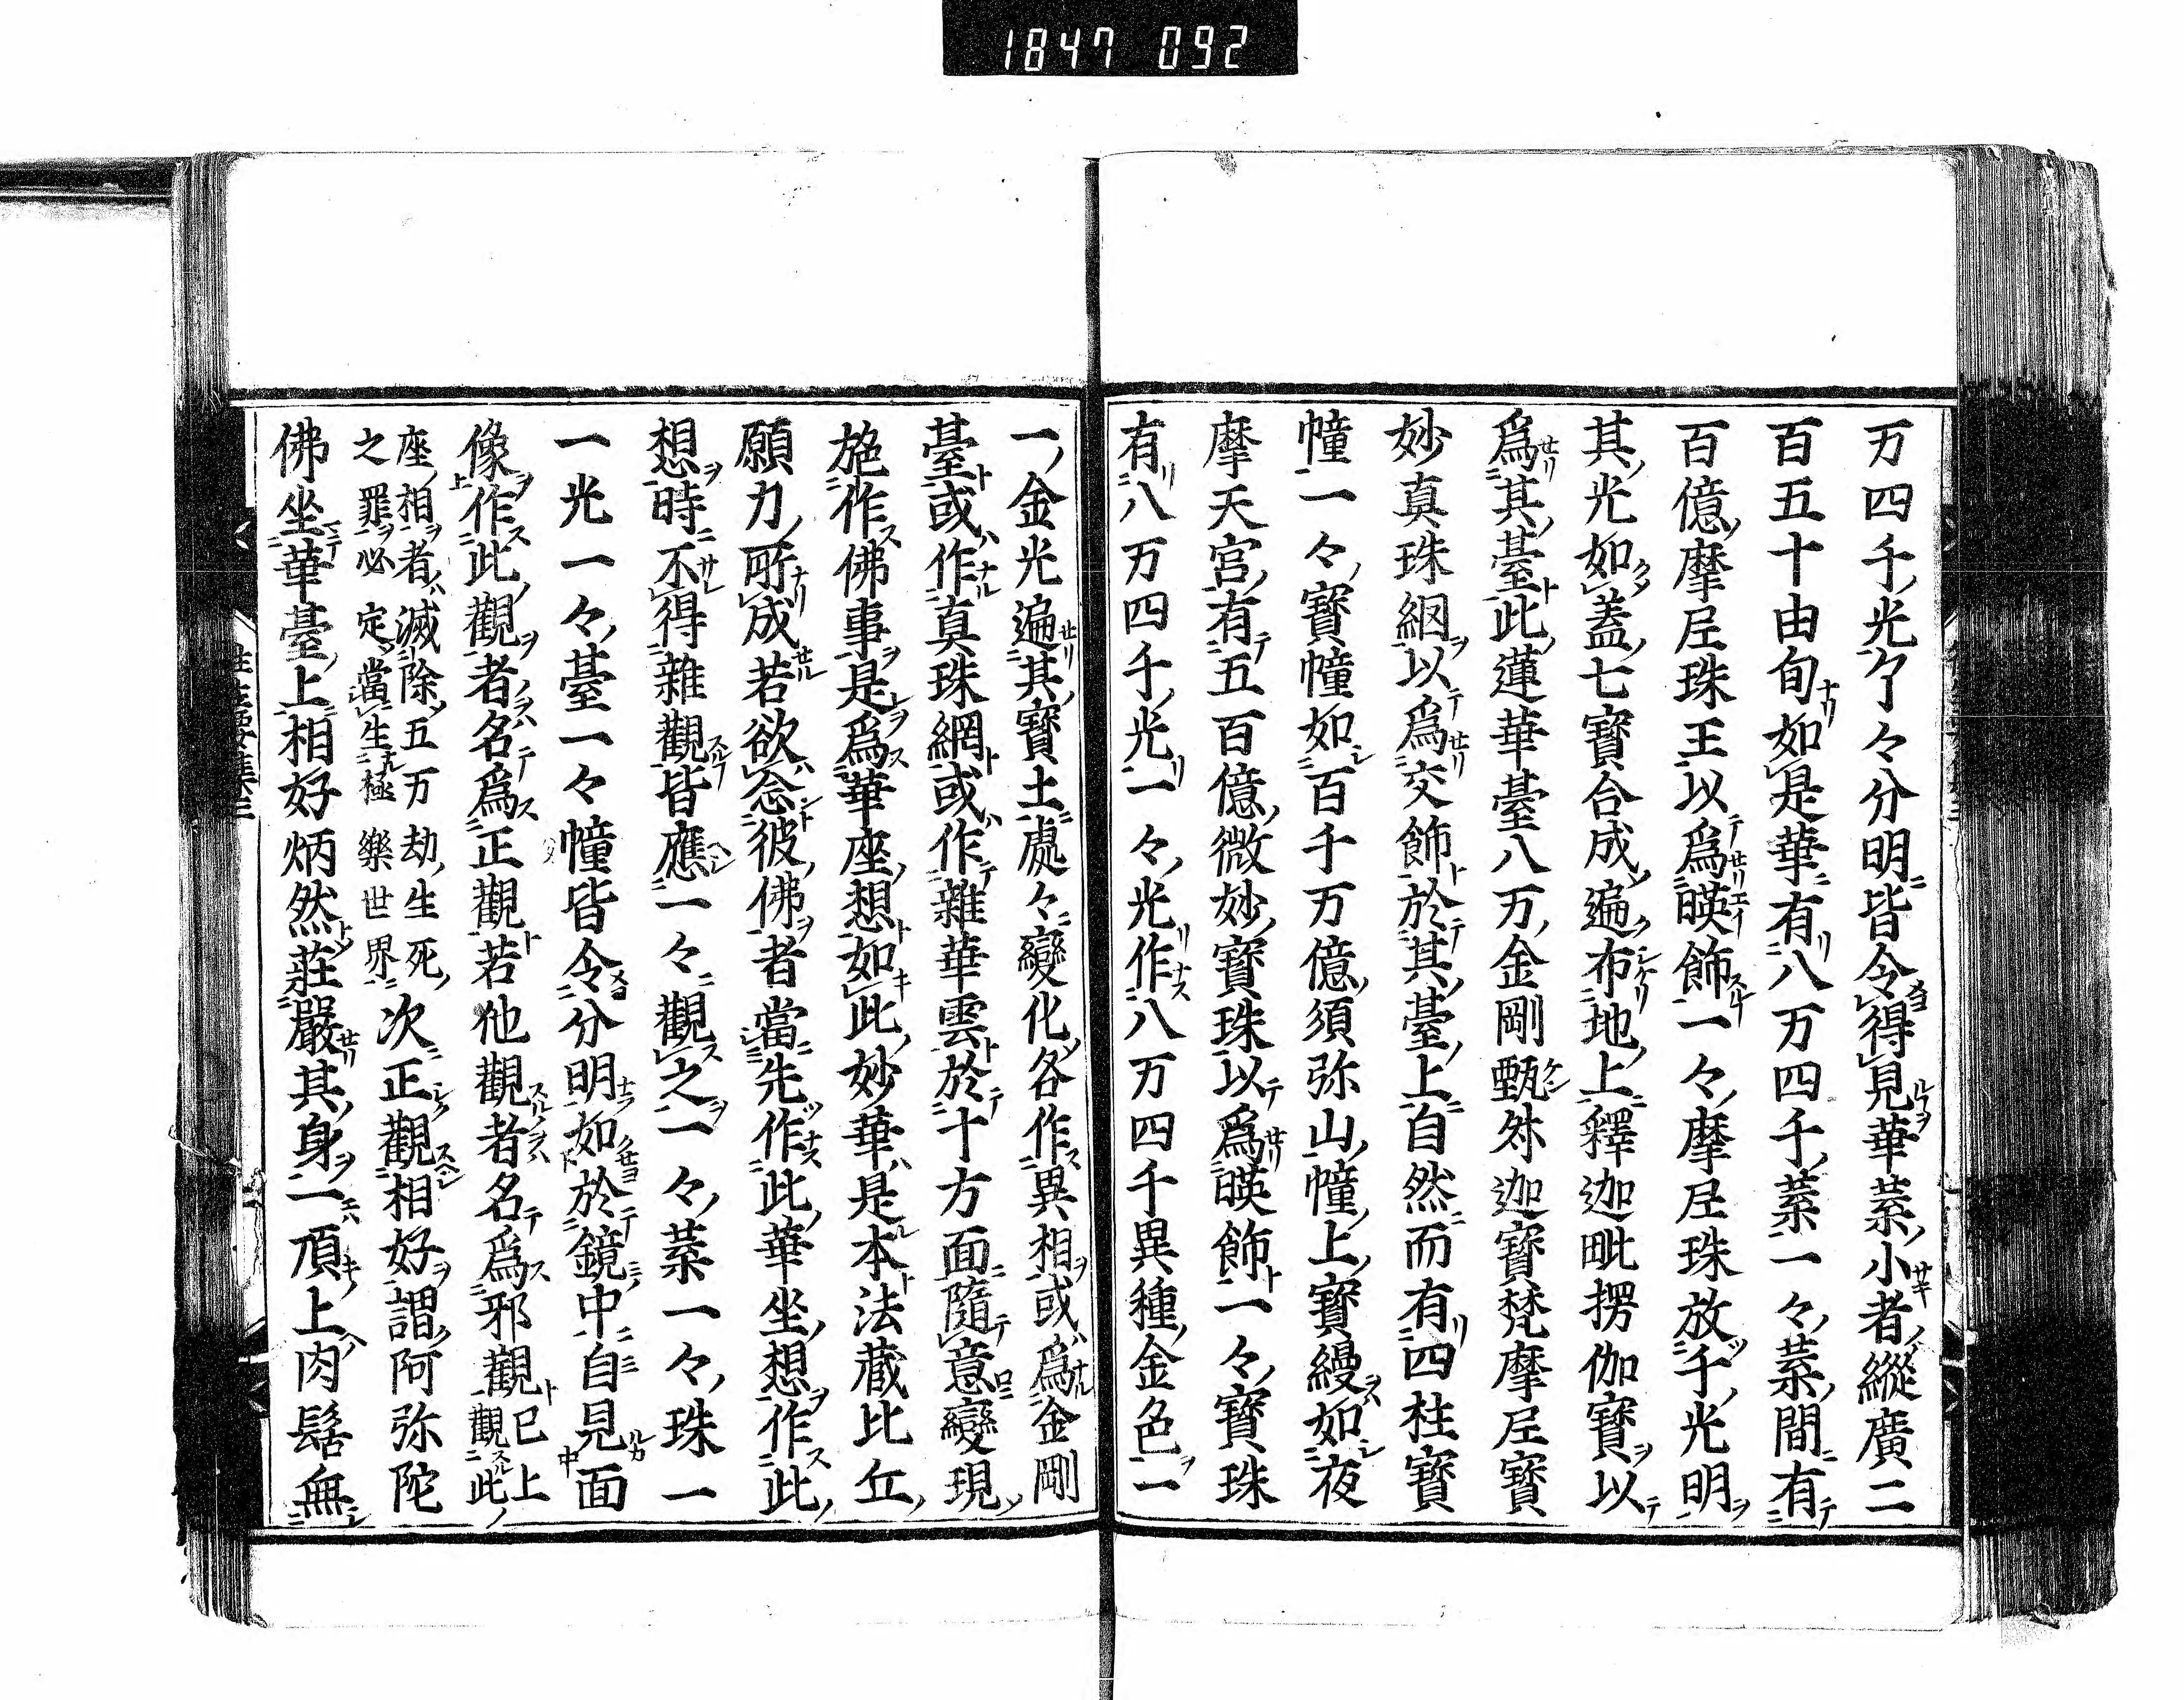 1847 092
万四千光了々分明皆令得見華葉小者縱廣二
百五十由旬如是華有八万四千葉一々葉間有
百億摩尼珠王以爲暎飾一々摩尼珠放千光明
其光如蓋七寶合成遍布地上釋迦毗楞伽寶以
爲其臺此蓮華臺八万金剛甄叔迦寶梵摩尼寶
妙真珠網以爲交飾於其臺上自然而有四柱寶
幢一々寶幢如百千万億須弥山幢上寶縵如夜
摩天宮有五百億微妙寶珠以爲暎飾一々寶珠
有八万四千光一々光作八万四千異種金色一
一金光遍其寶土處々變化各作異相或爲金剛
臺或作真珠網或作雜華雲於十方面隨意變現
施作佛事是爲華座想如此妙華是本法蔵比丘
願力所成若欲念彼佛者當先作此華坐想作此
想時不得雜觀皆應一々觀之一々葉一々珠一
一光一々臺一々幢皆令分明如於鏡中自見面
像作此觀者名爲正觀若他觀者名爲邪觀已上觀此
座相者滅除五万劫生死之罪必定當生極樂世界次正觀相好謂阿弥陀
佛坐華臺上相好炳然莊嚴其身一頂上肉髻無